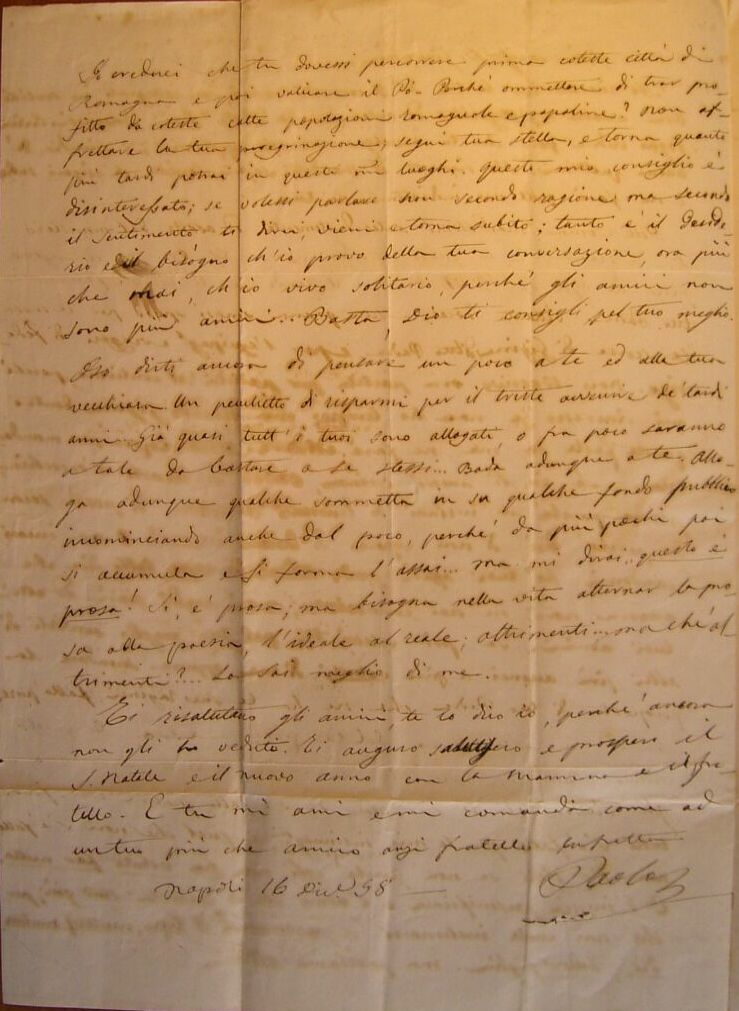 Io crederei che tu dovessi percorrere prima coteste città di
Romagna e poi valicare il Pò. Perché ommettere di trar pro-
fitto da coteste colte popolazioni romagnole e papaline? Non af-
frettare la tua peregrinazione; segui tua stella, e torna quanto
più tardi potrai in questi luoghi. Questo mio consiglio è
disinteressato; se volessi parlare non secondo ragione ma secondo
il sentimento ti direi, vieni e torna subito; tanto è il deside-
rio ed il bisogno ch'io provo della tua conversazione, ora più
che mai, ch'io vivo solitario, perché gli amici non
sono più amici... Basta, Dio ti consigli pel tuo meglio.
Oso dirti ancora di pensare un poco a te ed alla tua
vecchiaia. Un peculietto di risparmi per il triste avvenire de' tardi
anni. Già quasi tutt'i tuoi sono allogati, o fra poco saranno
a tale da bastare a se stessi... Bada adunque a te. Allo-
ga adunque qualche sommetta in su qualche fondo pubblico
incominciando anche dal poco, perché da più pochi poi
si accumula e si forma l'assai... Ma mi dirai, questo è
prosa! Sì, è prosa; ma bisogna nella vita alternar la pro-
sa alla poesia, l'ideale al reale; altrimenti... ma che al-
trimenti?... Lo sai meglio di me.
Ti risalutano gli amici, te lo dico io, perché ancora
non gli ho veduti. Ti auguro e prospero il
S. Natale e il nuovo anno con la Mamma e il fra-
tello. E tu mi ami e mi comandi come ad
un tuo più che amico anzi fratello
Napoli 16 Dic.e 58
Paolo